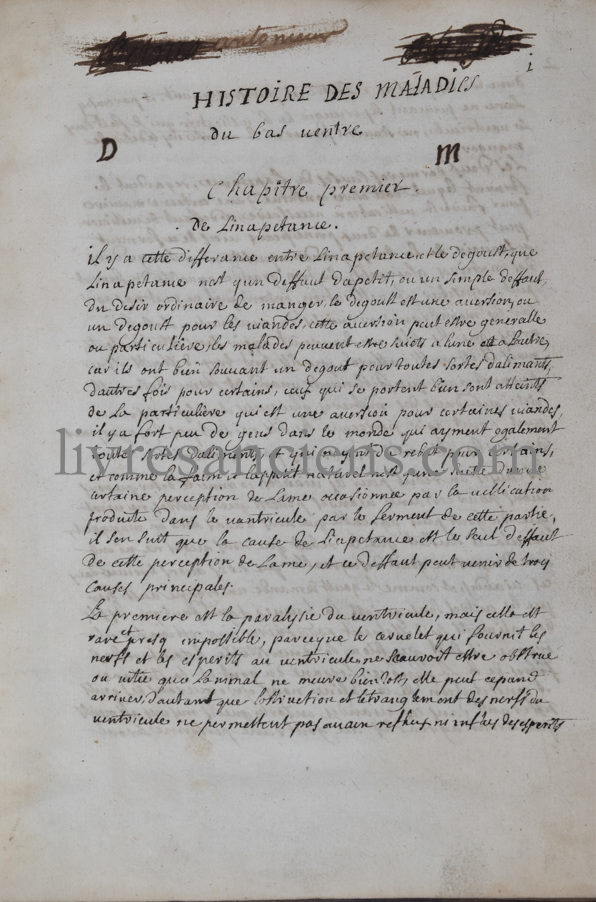 antonieux
1
HISTOIRE DES MALADIES
du bas ventre
D M
Chapitre premier.
De Linapetance.
il y a cette differance entre Linapetance et le degoust, que
Linapetance nest qun deffaut dapetit, ou un simple deffaut
du desir ordinaire de manger, le degoust est une aversion, ou
un degoust pour les viandes, cette aversion peut estre generalle
ou particuliere, les malades peuvent estre suiets a lune et a lautre,
car ils ont bien souvant un degout pour toutes sortes dalimants,
dautres fois pour certains, ceux qui se portent bien sont atteints
de la particuliere qui est une aversion pour certaines viandes,
il y a fort peu de gens dans le monde qui ayment egalement
toutes sortes dalimants, et qui nayent du rebut pour certains,
et comme la faim et lappetit naturel nest qune suite dune
certaine perception de Lame occasionnée par la vellication
produite dans le vantricule par le ferment de cette partie,
il sen suit que la cause de Linapetance est le seul deffaut
de cette perception de Lame, et ce deffaut peut venir de troys
causes principales.
La premiere est la paralysie du ventricule, mais celle est
rare et presq impossible, parceque le cervelet qui fournit les
nerfs et les esperits au ventricule ne scauroit estre obstrué
ou vitié que Lanimal ne meure bientost, elle peut cepand
arriver, dautant que lobstruction et letranglement des nerfs du
ventricule ne permettent pas aucun reflux ni influx des esperits
livresanciens.com